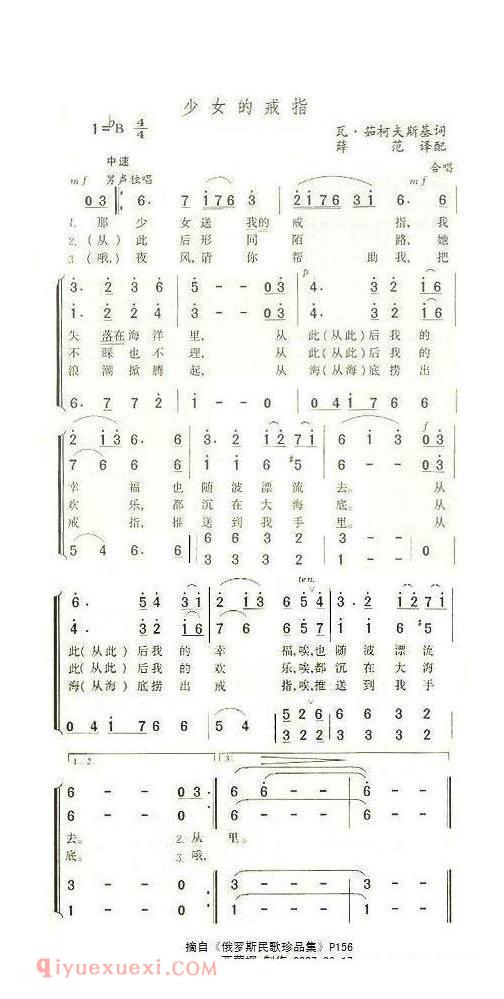 少女的戒指
1=♭B 4/4
瓦·茹柯夫斯基词
薛 范 译配
中速
合唱
mf 男声独唱 mf
0 3 6· 7 1 7 6 3 2 1 7 6 3 6· 6
1. 那少女送我的戒指,我
2.(从)此后形同陌路,她
3.(哦)夜风,请你帮助我,把
p
3· 2 3 6 5 - - 0 3 4· 3 2 1 2
1· 2 1 2 3 - - 0 3 4· 3 2 1 2
失落在海洋里,从此(从此)后我的
不睬也不理,从此(从此)后我的
浪潮掀腾起,从海(从海)底捞出
6· 7 7 2 1 - - 0 0 4 1 7 6 6
f
2 1 3 6· 6 3· 2 1 2 7 1 6 1 0 3
7 6 6 6 1 1 6 #5 6 - - 0 3
幸福也随波漂流去。从
欢乐,都沉在大海底。从
戒指,推送到我手里。从
5 4 6· 6
ten.
6· 5 4 3 1 2· 1 2 1 3 6 5 4 3· 1 2 7 1
4· 3 2 1 6 7 6
此(从此)后我的幸福,唉,也随波漂流
此(从此)后我的欢乐,唉,都沉在大海
海(从海)底捞出戒指,唉,推送到我手
0 0 4 1 7 6 6
1. 2. 3.
6 - - 0 3
6 - - 0 3
去。 2.从里。
底。 3.哦,
3 - - 0
1 - - 0
摘自《俄罗斯民歌珍品集》P156
qiyuexuexi.com